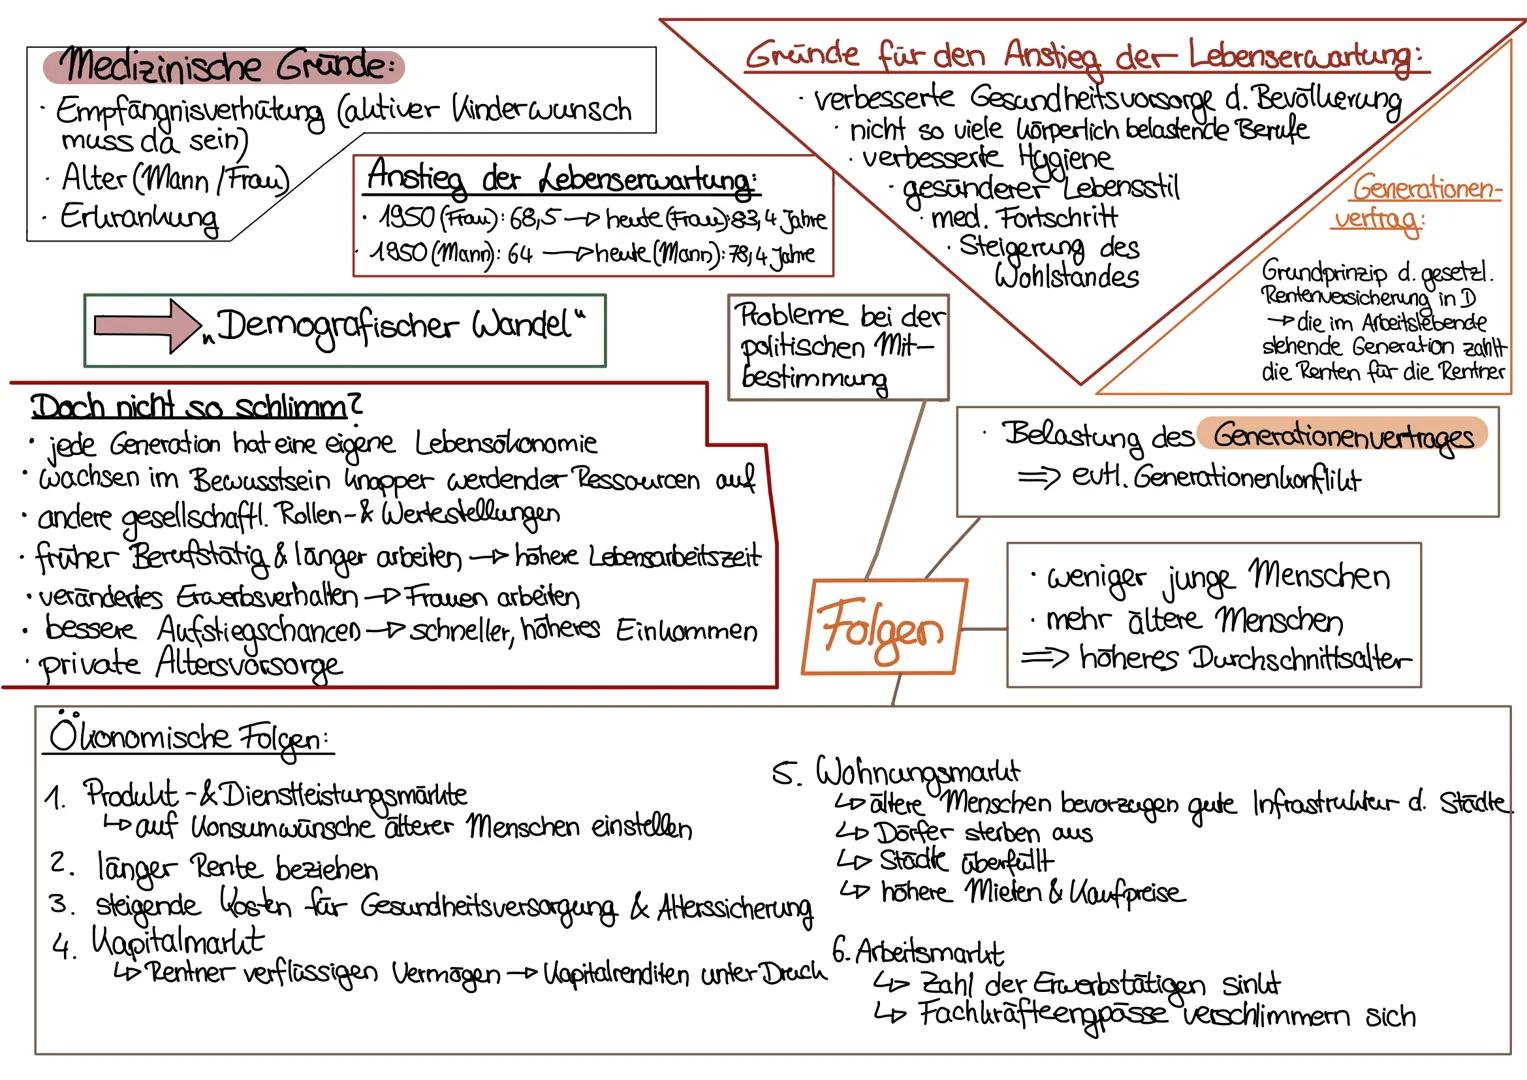 Medizinische Gründe:
· Empfängnisverhütung (aktiver Kinderwunsch
muss da sein)
· Alter (Mann / Frau)
· Erkrankung
Anstieg der Lebenserwartung:
· 1950 (Frau): 68,5 → heute (Frau): 83,4 Jahre
· 1950 (Mann): 64 → heute (Mann): 78,4 Jahre
Gründe für den Anstieg der Lebenserwartung:
· verbesserte Gesundheitsvorsorge d. Bevölkerung
· nicht so viele körperlich belastende Berufe
· verbesserte Hygiene
· gesünderer Lebensstil
· med. Fortschritt
· Steigerung des
Wohlstandes
Generationen-
vertrag:
Grundprinzip d. gesetzl.
Rentenversicherung in D
→ die im Arbeitslebende
stehende Generation zahlt
die Renten für die Rentner
„Demografischer Wandel“
Probleme bei der
politischen Mit-
bestimmung
Doch nicht so schlimm?
· jede Generation hat eine eigene Lebensökonomie
· wachsen im Bewusstsein knapper werdender Ressourcen auf
· andere gesellschaftl. Rollen- & Wertestellungen
· früher Berufstätig & länger arbeiten → höhere Lebensarbeitszeit
· verändertes Erwerbsverhalten → Frauen arbeiten
· bessere Aufstiegschancen → schneller, höheres Einkommen
· private Altersvorsorge
· Belastung des Generationenvertrages
⇒ evtl. Generationenkonflikt
Folgen
· weniger junge Menschen
· mehr ältere Menschen
⇒ höheres Durchschnittsalter
Ökonomische Folgen:
1. Produkt- & Dienstleistungsmärkte
↳ auf Konsumwünsche älterer Menschen einstellen
2. länger Rente beziehen
3. steigende Kosten für Gesundheitsversorgung & Alterssicherung
4. Kapitalmarkt
↳ Rentner verflüssigen Vermögen → Kapitalrenditen unter Druck
5. Wohnungsmarkt
↳ ältere Menschen bevorzugen gute Infrastruktur d. Städte
↳ Dörfer sterben aus
↳ Städte überfüllt
↳ höhere Mieten & Kaufpreise
6. Arbeitsmarkt
↳ Zahl der Erwerbstätigen sinkt
↳ Fachkräfteengpässe verschlimmern sich